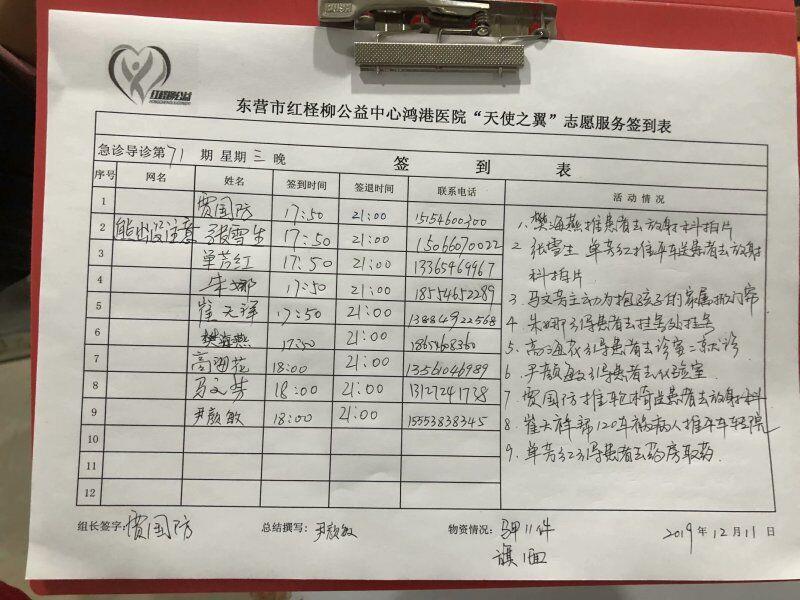 PUSH
红柽柳公益
东营市红柽柳公益中心鸿港医院“天使之翼”志愿服务签到表
急诊导诊第71期 星期三晚 签到表
序号 网名 姓名 签到时间 签退时间 联系电话 活动情况
1 贾国防 17:50 21:00 15154600300
2 能出没注意 张雪生 17:50 21:00 15066070022
3 单芳红 17:50 21:00 13365469967
4 朱娜 17:50 21:00 18554652289
5 崔天祥 17:50 21:00 13884922568
6 樊海燕 17:50 21:00 18654608360
7 高海花 18:00 21:00 13561046989
8 马文芳 18:00 21:00 13127241738
9 尹颜敏 18:00 21:00 15553838345
10
11
12
1、樊海燕推患者去放射科拍片
2 张雪生 单芳红推平车送患者去放射
科拍片
3、马文芳主动为抱孩子的家属掀门帘
4、朱娜引导患者去挂号处挂号
5、高海花引导患者去诊室二就诊
6、尹颜敏引导患者去化验室
7、贾国防推轮椅送患者去放射科
8、崔天祥帮120车祸病人推平车轻院
9、单芳红引导患者去药房取药
组长签字:贾国防 总结撰写:尹颜敏 物资情况:马甲11件 2019年12月11日
旗1面